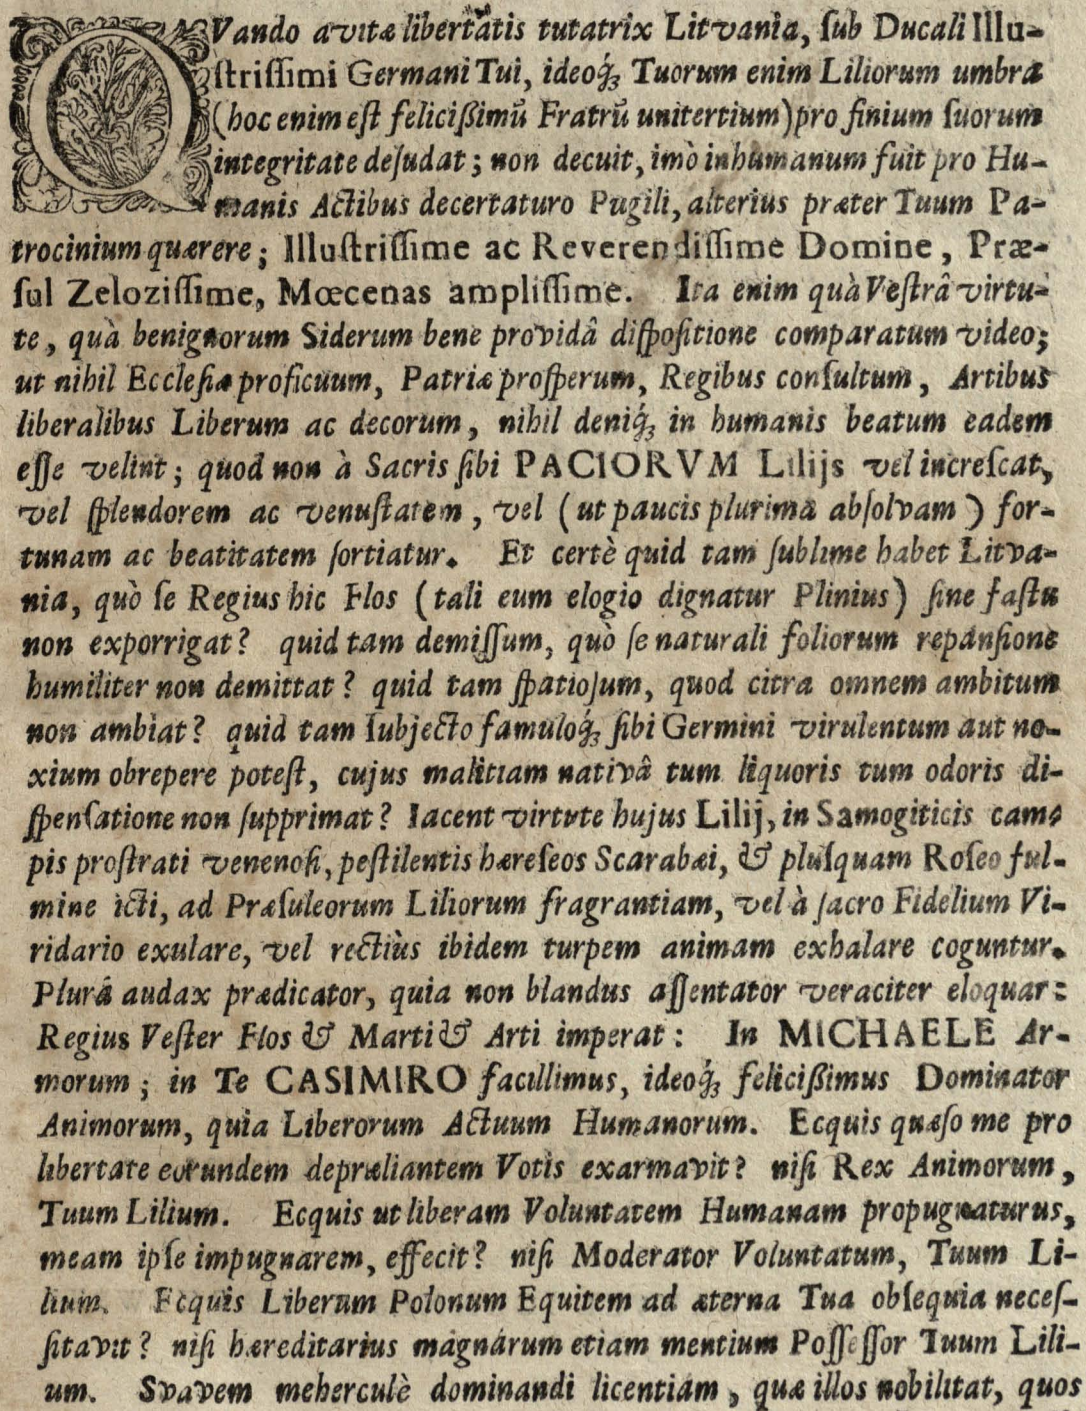 QVando avitæ libertatis tutatrix Litvania, ſub Ducali Illu-
ſtriſſimi Germani Tui, ideoq́; Tuorum enim Liliorum umbra
(hoc enim eſt felicißimũ Fratrũ unitertium) pro finium ſuorum
integritate deſudat; non decuit, imò inhumanum fuit pro Hu-
manis Actibus decertaturo Pugili, alterius præter Tuum Pa-
trocinium quærere; Illuſtriſſime ac Reverendiſſime Domine, Præ-
ſul Zeloziſſime, Mœcenas ampliſſime. Ita enim quà Veſtrâ virtu-
te, quà benignorum Siderum bene providâ diſpoſitione comparatum video;
ut nihil Eccleſiæ proficuum, Patriæ proſperum, Regibus conſultum, Artibus
liberalibus Liberum ac decorum, nihil deniq́; in humanis beatum eadem
eſſe velint; quod non à Sacris ſibi PACIORVM Lilijs vel increſcat,
vel ſplendorem ac venuſtatem, vel (ut paucis plurima abſolvam) for-
tunam ac beatitatem ſortiatur. Et certè quid tam ſublime habet Litva-
nia, quò ſe Regius hic Flos (tali eum elogio dignatur Plinius) ſine faſtu
non exporrigat? quid tam demiſſum, quò ſe naturali foliorum repanſione
humiliter non demittat? quid tam ſpatioſum, quod citra omnem ambitum
non ambiat? quid tam ſubjecto famuloq́; ſibi Germini virulentum aut no-
xium obrepere poteſt, cujus malitiam nativâ tum liquoris tum odoris di-
ſpenſatione non ſupprimat? Iacent virtute hujus Lilij, in Samogiticis cam-
pis proſtrati venenoſi, peſtilentis hæreſeos Scarabæi, & pluſquam Roſeo ful-
mine icti, ad Præſuleorum Liliorum fragrantiam, vel à ſacro Fidelium Vi-
ridario exulare, vel rectiùs ibidem turpem animam exhalare coguntur.
Plura audax prædicator, quia non blandus aſſentator veraciter eloquar:
Regius Veſter Flos & Marti & Arti imperat: In MICHAELE Ar-
morum; in Te CASIMIRO facillimus, ideoq́; felicißimus Dominator
Animorum, quia Liberorum Actuum Humanorum. Ecquis quæſo me pro
libertate eorundem depræliantem Votis exarmavit? niſi Rex Animorum,
Tuum Lilium. Ecquis ut liberam Voluntatem Humanam propugnaturus,
meam ipſe impugnarem, effecit? niſi Moderator Voluntatum, Tuum Li-
lium. Ecquis Liberum Polonum Equitem ad æterna Tua obſequia neceſ-
ſitavit? niſi hæreditarius magnarum etiam mentium Poſſeſſor Tuum Lili-
um. Svavem meherculè dominandi licentiam, quæ illos nobilitat, quos